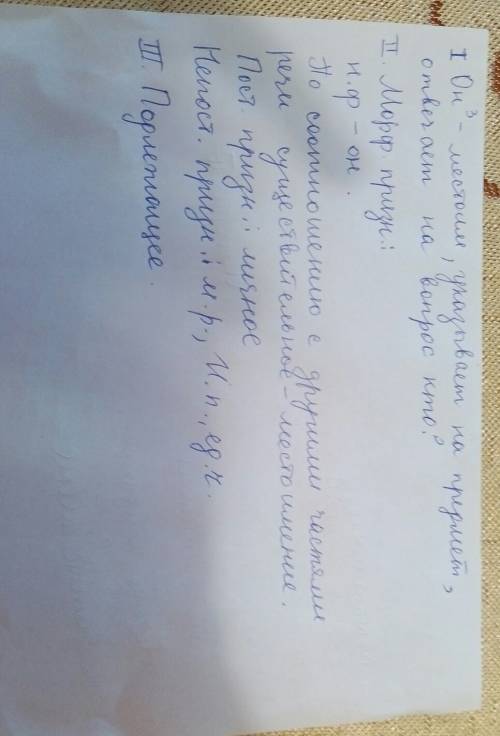 I Он³ - местоим, указывает на предмет,
отвечает на вопрос кто?
II. Морф. призн.:
н.ф - он.
По соотношению с другими частями
речи существительное - местоимение.
Пост. призн.: личное
Непост. призн.: м.р., И.п., ед.ч.
III. Подлежащее.